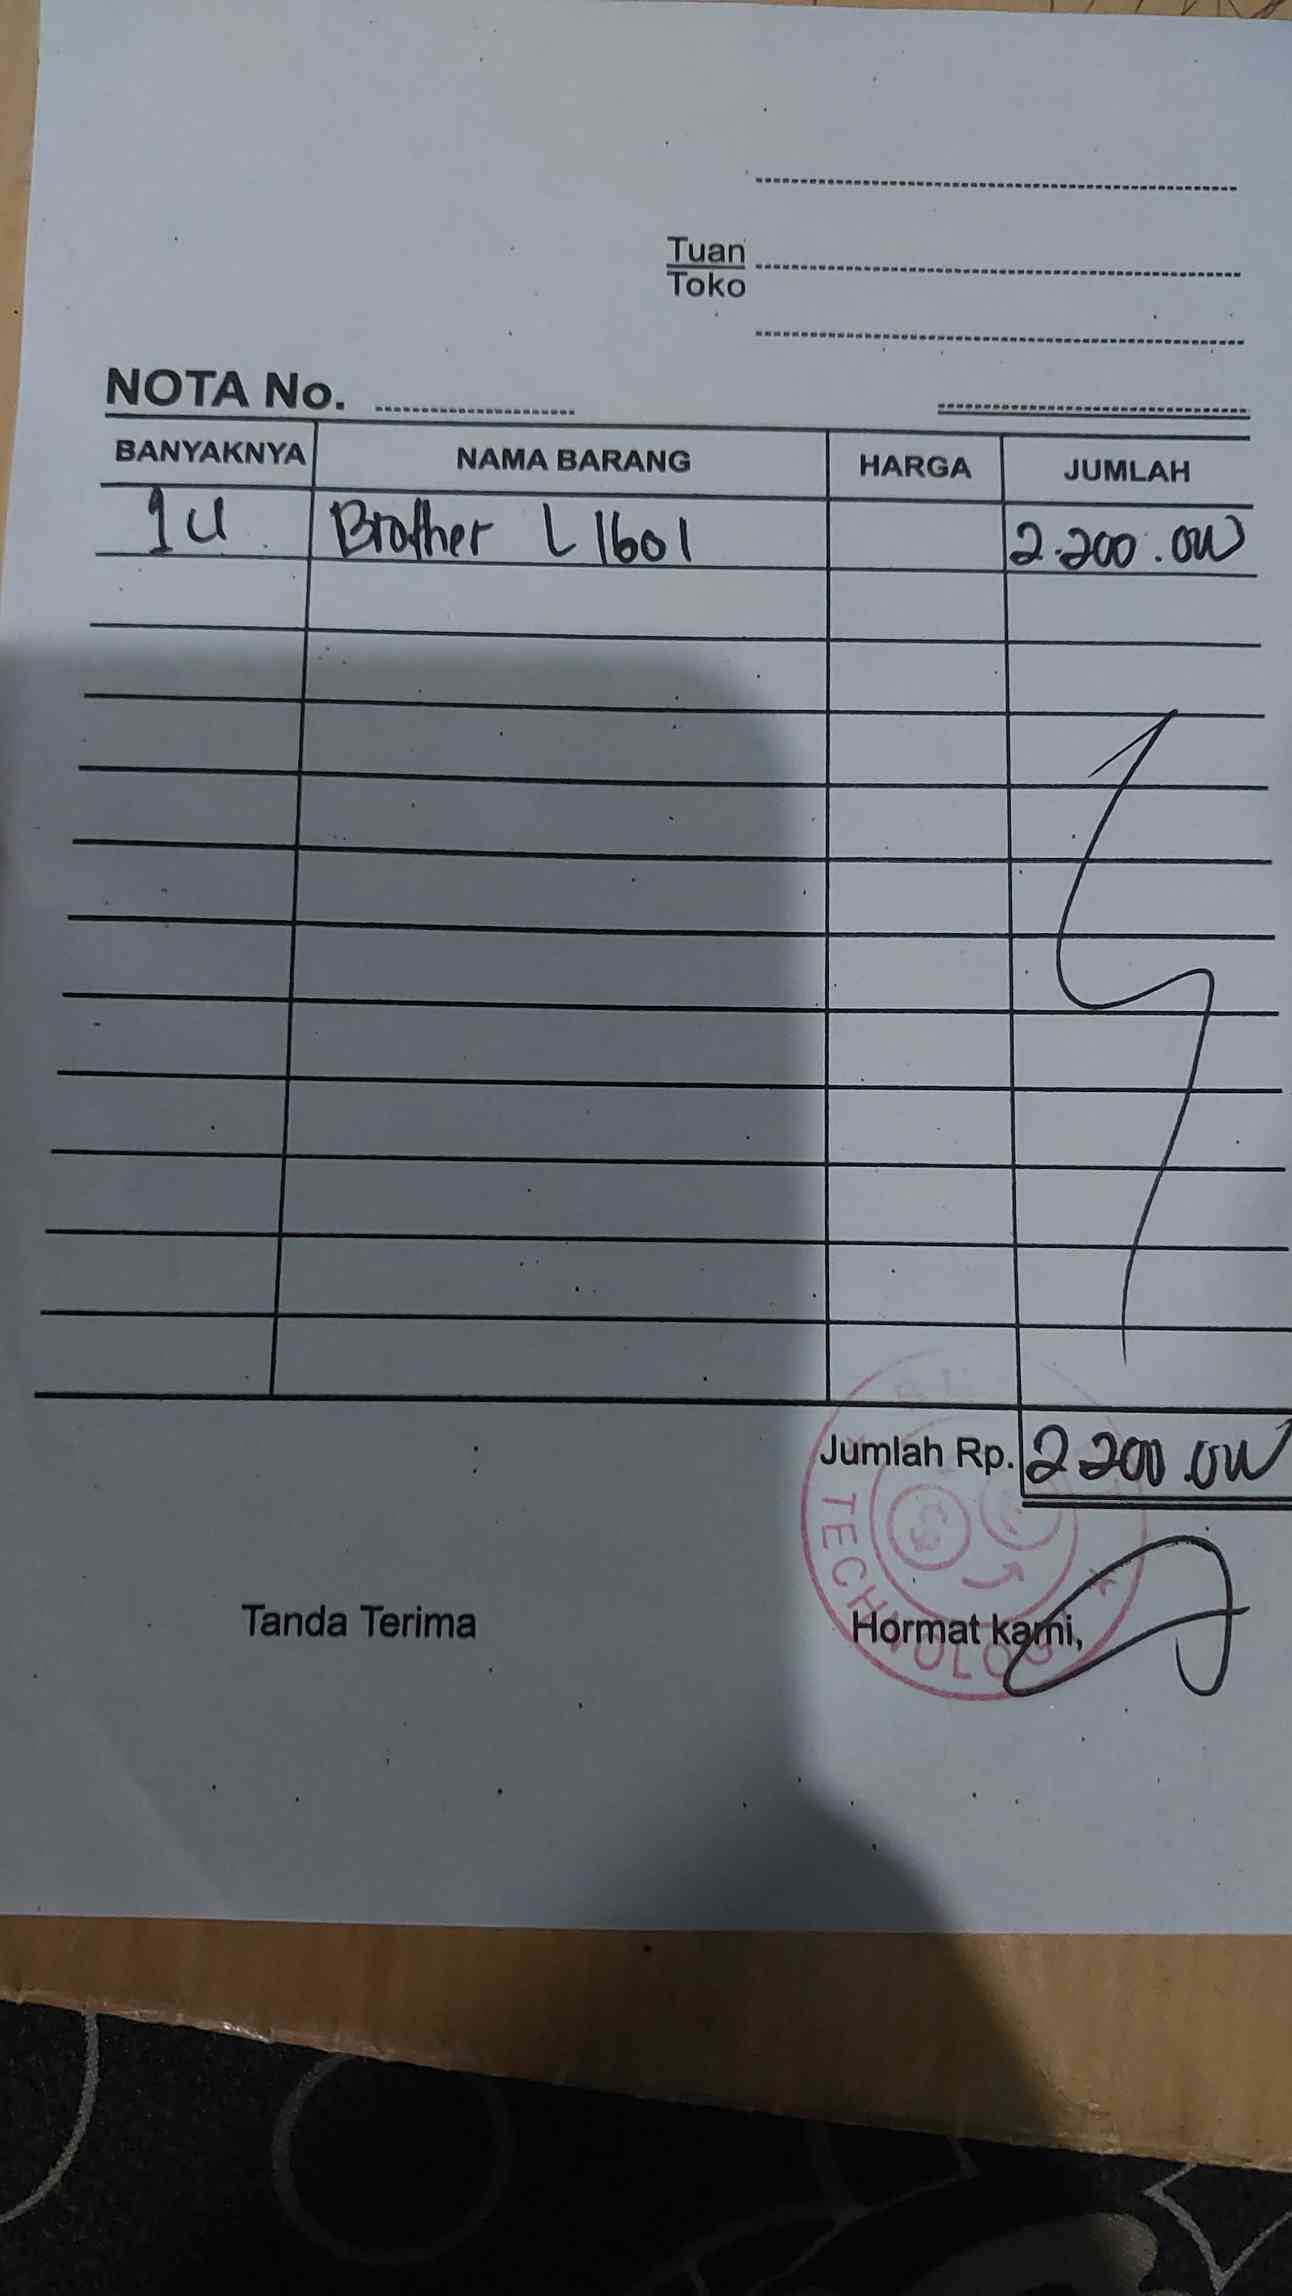 Tuan
Toko
NOTA No.
BANYAKNYA NAMA BARANG HARGA JUMLAH
1 U Brother L 1601 2.200.000
Jumlah Rp. 2 200.000
TECHNOLOGY
Tanda Terima Hormat kami,